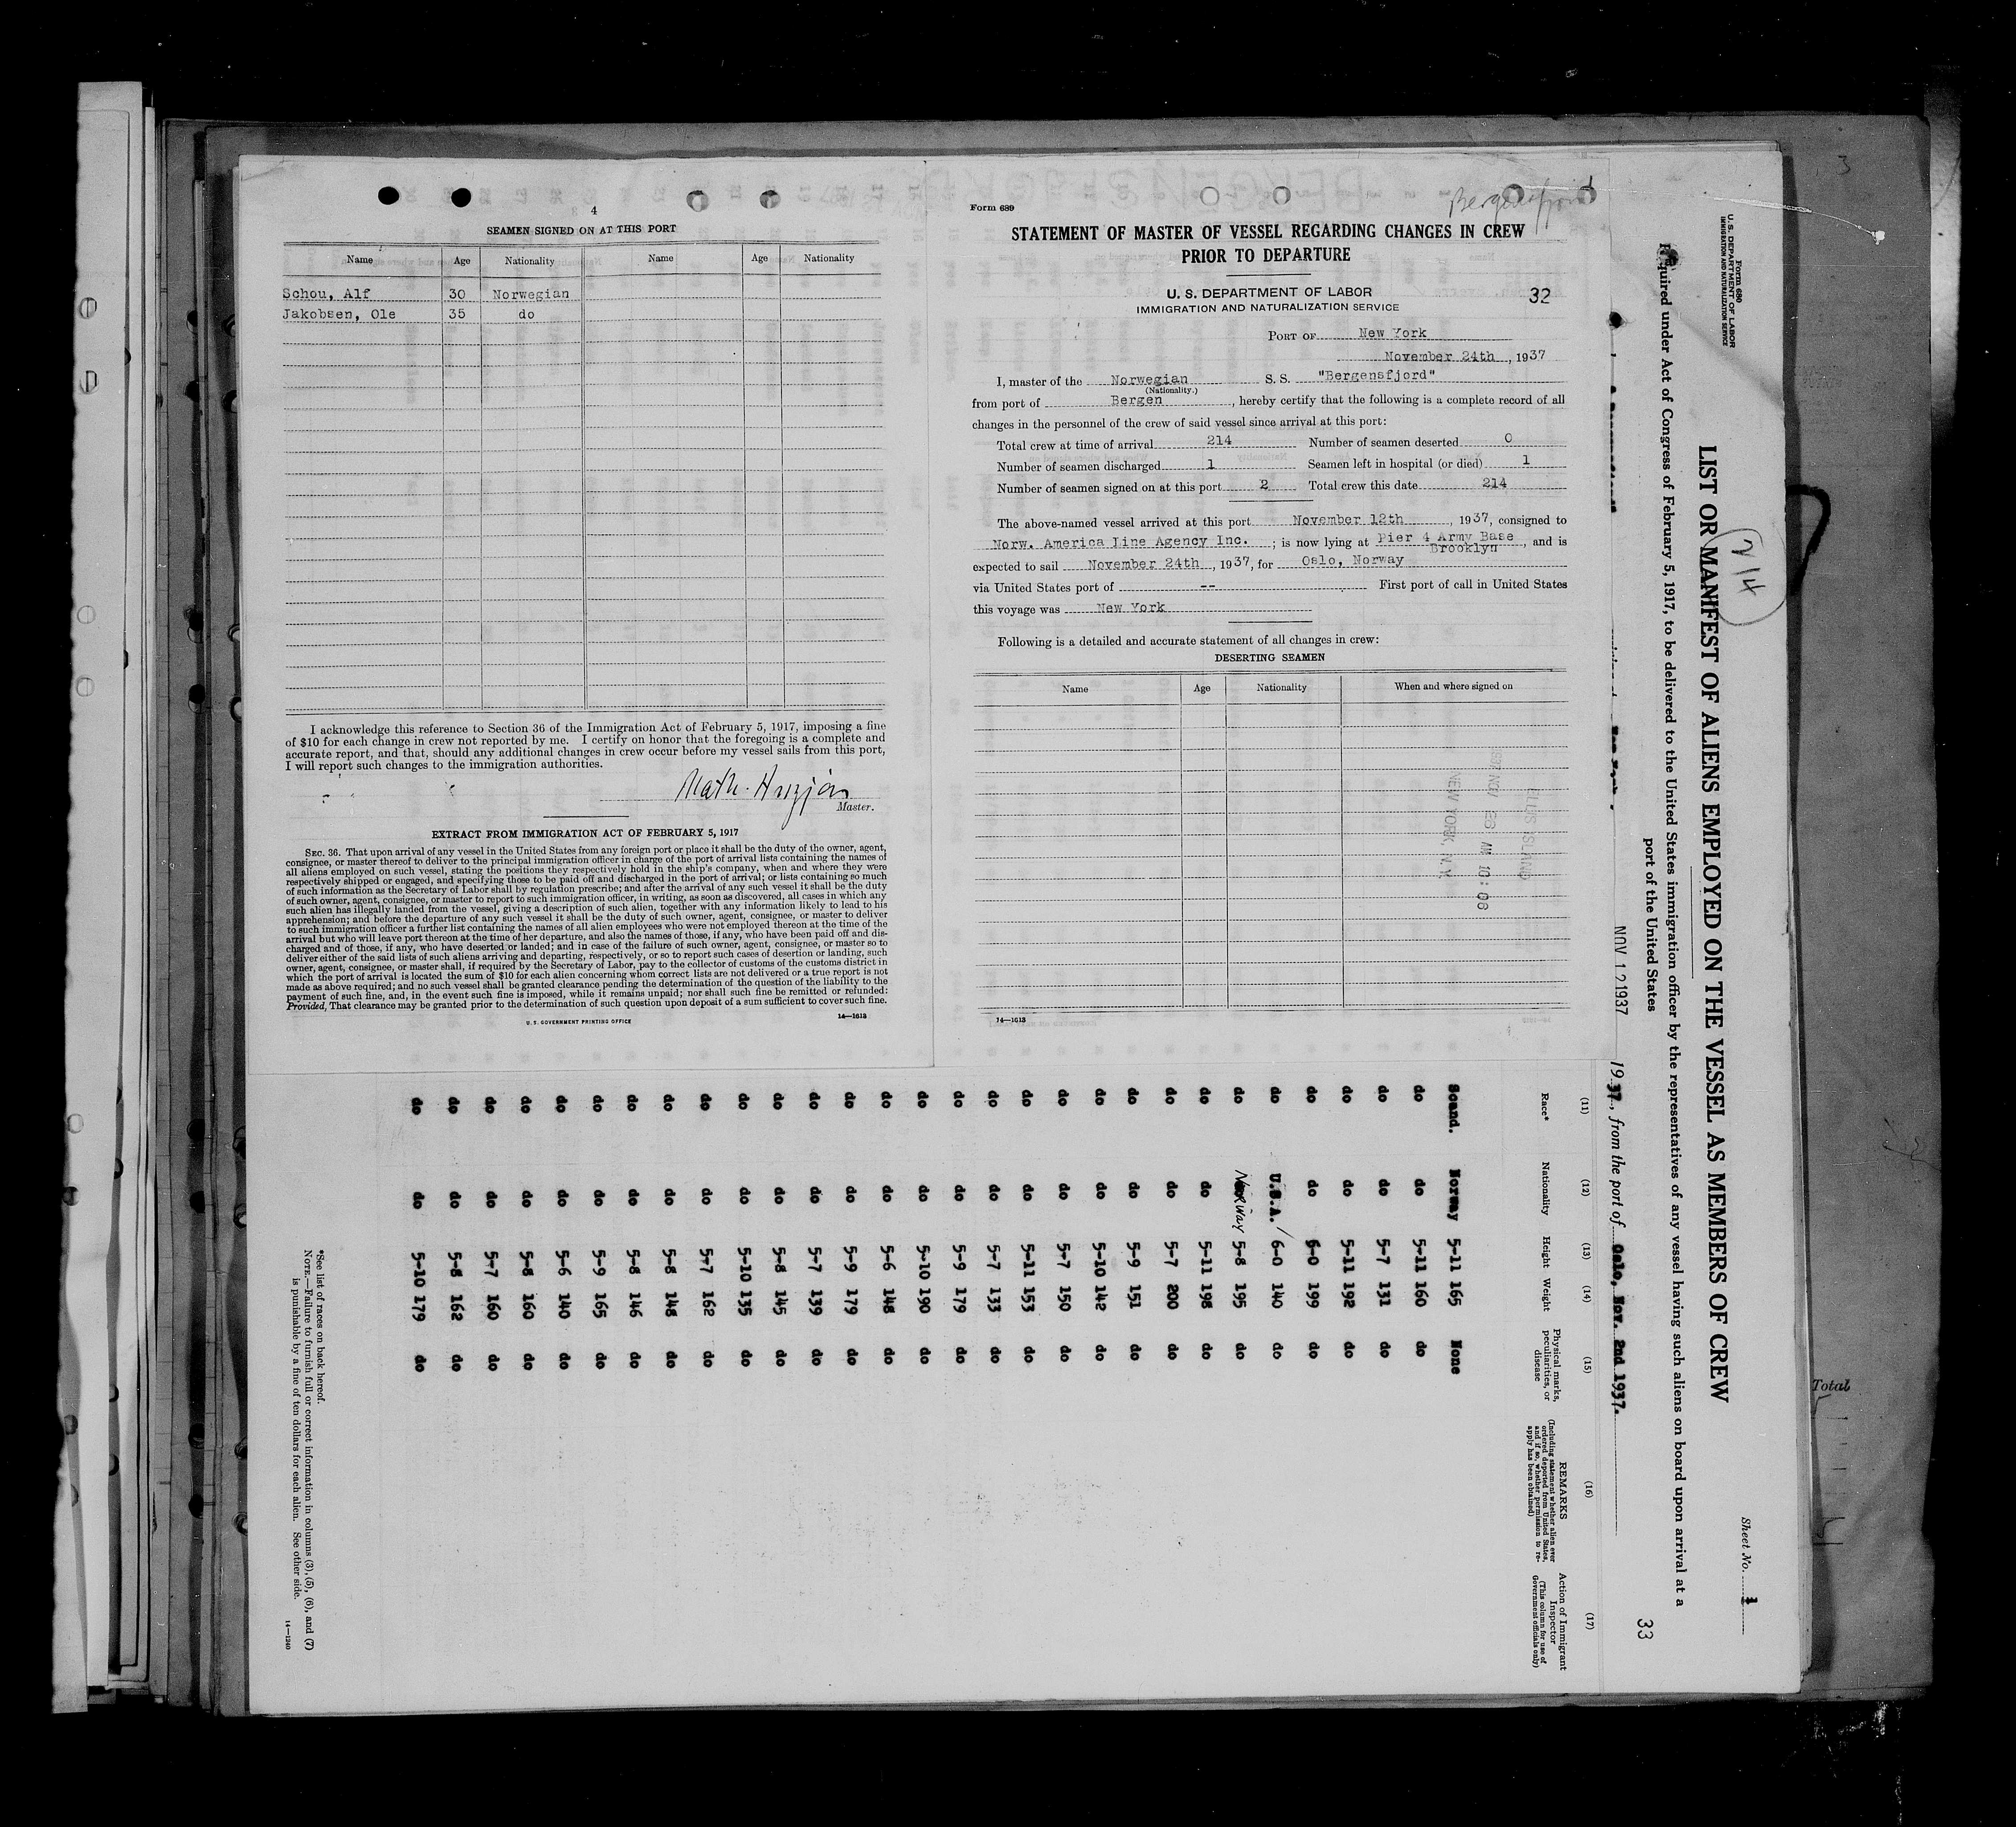 4
SEAMEN SIGNED ON AT THIS PORT
Name Age Nationality Name Age Nationality
Schou, Alf 30 Norwegian
Jakobsen, Ole 35 do
I acknowledge this reference to Section 36 of the Immigration Act of February 5, 1917, imposing a fine
of $10 for each change in crew not reported by me. I certify on honor that the foregoing is a complete and
accurate report, and that, should any additional changes in crew occur before my vessel sails from this port,
I will report such changes to the immigration authorities.
Master.
EXTRACT FROM IMMIGRATION ACT OF FEBRUARY 5, 1917
SEC. 36. That upon arrival of any vessel in the United States from any foreign port or place it shall be the duty of the owner, agent,
consignee, or master thereof to deliver to the principal immigration officer in charge of the port of arrival lists containing the names of
all aliens employed on such vessel, stating the positions they respectively hold in the ship's company, when and where they were
respectively shipped or engaged, and specifying those to be paid off and discharged in the port of arrival; or lists containing so much
of such information as the Secretary of Labor shall by regulation prescribe; and after the arrival of any such vessel it shall be the duty
of such owner, agent, consignee, or master to report to such immigration officer, in writing, as soon as discovered, all cases in which any
such alien has illegally landed from the vessel, giving a description of such alien, together with any information likely to lead to his
apprehension; and before the departure of any such vessel it shall be the duty of such owner, agent, consignee, or master to deliver
to such immigration officer a further list containing the names of all alien employees who were not employed thereon at the time of the
arrival but who will leave port thereon at the time of her departure, and also the names of those, if any, who have been paid off and dis-
charged and of those, if any, who have deserted or landed; and in case of the failure of such owner, agent, consignee, or master so to
deliver either of the said lists of such aliens arriving and departing, respectively, or so to report such cases of desertion or landing, such
owner, agent, consignee, or master shall, if required by the Secretary of Labor, pay to the collector of customs of the customs district in
which the port of arrival is located the sum of $10 for each alien concerning whom correct lists are not delivered or a true report is not
made as above required; and no such vessel shall be granted clearance pending the determination of the question of the liability to the
payment of such fine, and, in the event such fine is imposed, while it remains unpaid; nor shall such fine be remitted or refunded:
Provided, That clearance may be granted prior to the determination of such question upon deposit of a sum sufficient to cover such fine.
U. S. GOVERNMENT PRINTING OFFICE 14—1613
Form 689
Bergensfjord
STATEMENT OF MASTER OF VESSEL REGARDING CHANGES IN CREW
PRIOR TO DEPARTURE
U. S. DEPARTMENT OF LABOR
IMMIGRATION AND NATURALIZATION SERVICE
32
PORT OF New York
November 24th, 1937
I, master of the Norwegian S. S. "Bergensfjord"
(Nationality.)
from port of Bergen, hereby certify that the following is a complete record of all
changes in the personnel of the crew of said vessel since arrival at this port:
Total crew at time of arrival 214 Number of seamen deserted 0
Number of seamen discharged 1 Seamen left in hospital (or died) 1
Number of seamen signed on at this port 2 Total crew this date 214
The above-named vessel arrived at this port November 12th, 1937, consigned to
Norw. America Line Agency Inc. ; is now lying at Pier 4 Army Base Brooklyn, and is
expected to sail November 24th, 1937, for Oslo, Norway
via United States port of -- First port of call in United States
this voyage was New York
Following is a detailed and accurate statement of all changes in crew:
DESERTING SEAMEN
Name Age Nationality When and where signed on
ELLIS ISLAND
NOV 26 AM 10:06
NEW YORK, N.Y.
14—1613
Form 680
U. S. DEPARTMENT OF LABOR
IMMIGRATION AND NATURALIZATION SERVICE
Sheet No. 1
214
LIST OR MANIFEST OF ALIENS EMPLOYED ON THE VESSEL AS MEMBERS OF CREW
Required under Act of Congress of February 5, 1917, to be delivered to the United States immigration officer by the representatives of any vessel having such aliens on board upon arrival at a
port of the United States
33
NOV 12 1937 1937, from the port of Oslo, Nov. 2nd 1937.
(11) (12) (13) (14) (15) (16) (17)
Race* Nationality Height Weight Physical marks, peculiarities, or disease REMARKS (Including statement whether alien ever ordered deported from United States, and if so, whether permission to re-apply has been obtained) Action of Immigrant Inspector (This column for use of Government officials only)
Scand. Norway 5-11 165 None
do do 5-11 160 do
do do 5-7 131 do
do do 5-11 192 do
do do 6-0 199 do
do U.S.A. 6-0 140 do
do Norway 5-8 195 do
do do 5-11 198 do
do do 5-7 200 do
do do 5-9 151 do
do do 5-10 142 do
do do 5-7 150 do
do do 5-11 153 do
do do 5-7 133 do
do do 5-9 179 do
do do 5-10 190 do
do do 5-6 148 do
do do 5-9 179 do
do do 5-7 139 do
do do 5-8 145 do
do do 5-10 135 do
do do 5-7 162 do
do do 5-8 148 do
do do 5-8 146 do
do do 5-9 165 do
do do 5-6 140 do
do do 5-8 160 do
do do 5-7 160 do
do do 5-8 162 do
do do 5-10 179 do
*See list of races on back hereof.
NOTE.—Failure to furnish full or correct information in columns (3), (5), (6), and (7)
is punishable by a fine of ten dollars for each alien. See other side.
14—1240
Total
3